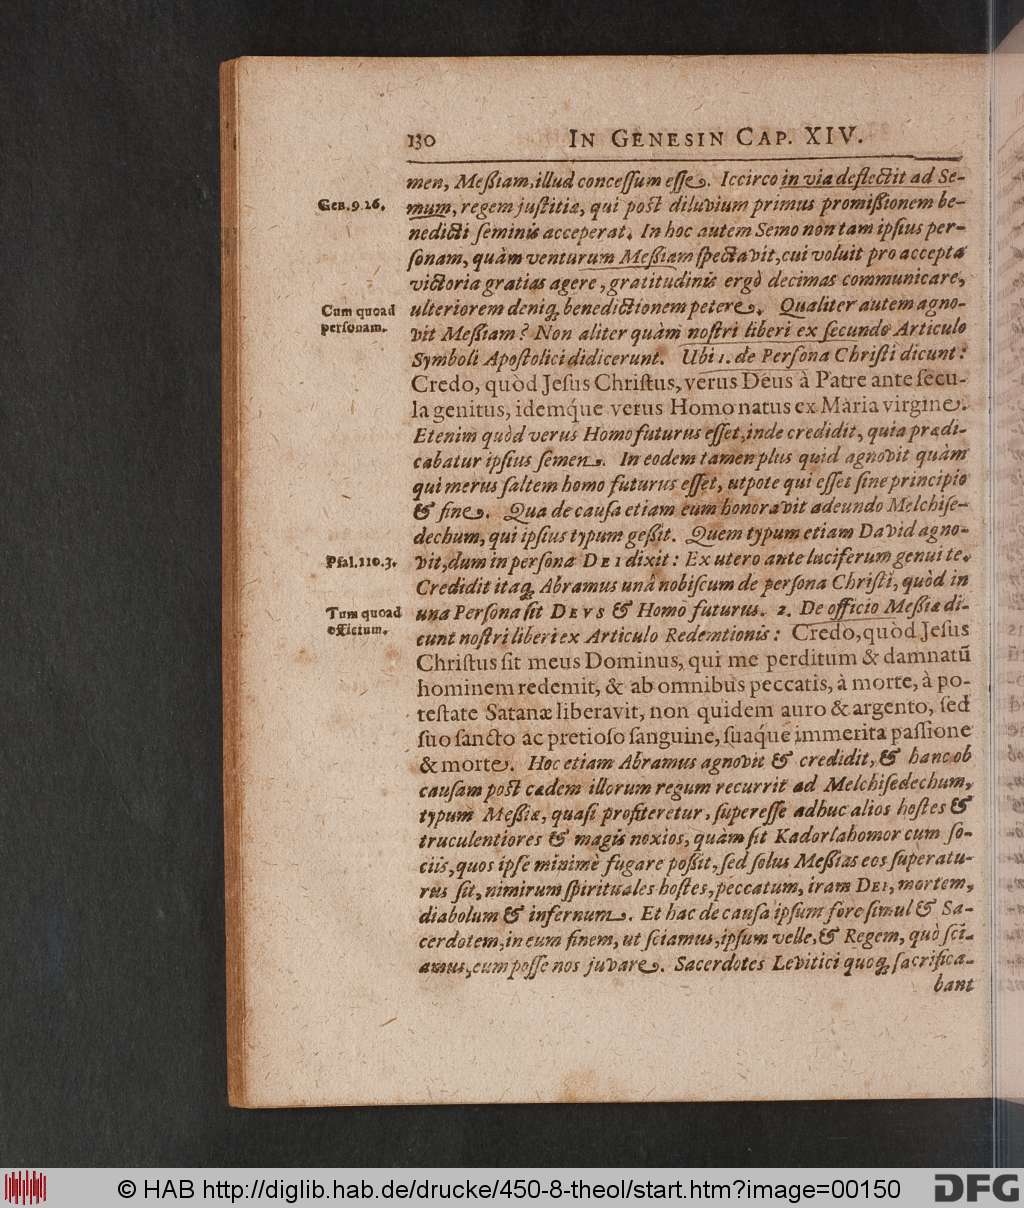 130 IN GENESIN CAP. XIV.
men, Meßiam, illud concessum esse. Iccirco in via deflectit ad Se-
Gen. 9. 26. mum, regem justitiæ, qui post diluvium primus promißionem be-
nedicti seminis acceperat. In hoc autem Semo non tam ipsius per-
sonam, quàm venturum Meßiam spectavit, cui voluit pro accepta
victoria gratias agere, gratitudinis ergò decimas communicare,
Cum quoad ulteriorem deniq; benedictionem petere. Qualiter autem agno-
personam. vit Meßiam? Non aliter quàm nostri liberi ex secundo Articulo
Symboli Apostolici didicerunt. Ubi 1. de Persona Christi dicunt:
Credo, quòd Jesus Christus, verus Deus à Patre ante secu-
la genitus, idemq́ue verus Homo natus ex Maria virgine.
Etenim quòd verus Homo futurus esset, inde credidit, quia prædi-
cabatur ipsius semen. In eodem tamen plus quid agnovit quàm
qui merus saltem homo futurus esset, utpote qui esset sine principio
& fine. Qua de causa etiam eum honoravit adeundo Melchise-
dechum, qui ipsius typum geßit. Quem typum etiam David agno-
Psal. 110. 3. vit, dum in persona DEI dixit: Ex utero ante luciferum genui te.
Credidit itaq; Abramus unà nobiscum de persona Christi, quòd in
Tum quoad una Persona sit DEVS & Homo futurus. 2. De officio Meßiæ di-
officium. cunt nostri liberi ex Articulo Redemtionis: Credo, quòd Jesus
Christus sit meus Dominus, qui me perditum & damnatũ
hominem redemit, & ab omnibus peccatis, à morte, à po-
testate Satanæ liberavit, non quidem auro & argento, sed
suo sancto ac pretioso sanguine, suaq́ue immerita passione
& morte. Hoc etiam Abramus agnovit & credidit, & hanc ob
causam post cædem illorum regum recurrit ad Melchisedechum,
typum Meßiæ, quasi profiteretur, superesse adhuc alios hostes &
truculentiores & magis noxios, quàm sit Kadorlahomor cum so-
ciis, quos ipse minimè fugare poßit, sed solus Meßias eos superatu-
rus sit, nimirum spirituales hostes, peccatum, iram DEI, mortem,
diabolum & infernum. Et hac de causa ipsum fore simul & Sa-
cerdotem, in eum finem, ut sciamus, ipsum velle, & Regem, quò sci-
amus, eum posse nos juvare. Sacerdotes Levitici quoq; sacrifica-
bant
© HAB http://diglib.hab.de/drucke/450-8-theol/start.htm?image=00150
DFG